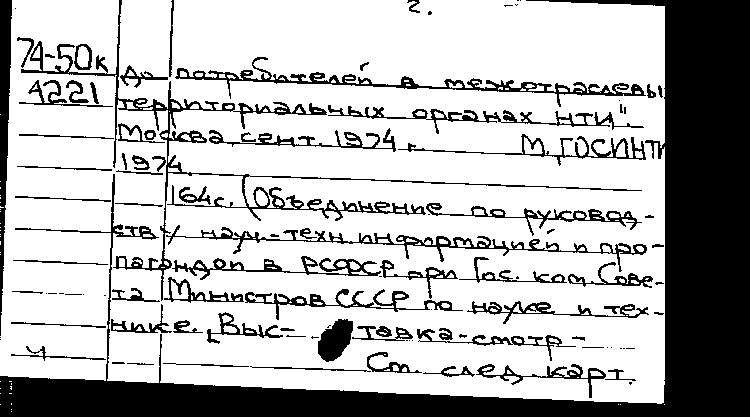 2.
74-50к
4221
до потребителей в межотраслевы
территориальных органах НТИ".
Москва, сент. 1974 г. М., ГОСИНТИ
1974.
164с. (Объединение по руковод-
ству науч.-техн. информацией и про-
пагандой в РСФСР при Гос. ком. Сове-
та Министров СССР по науке и тех-
нике. [Выс- тавка-смотр-
Ч См. след. карт.